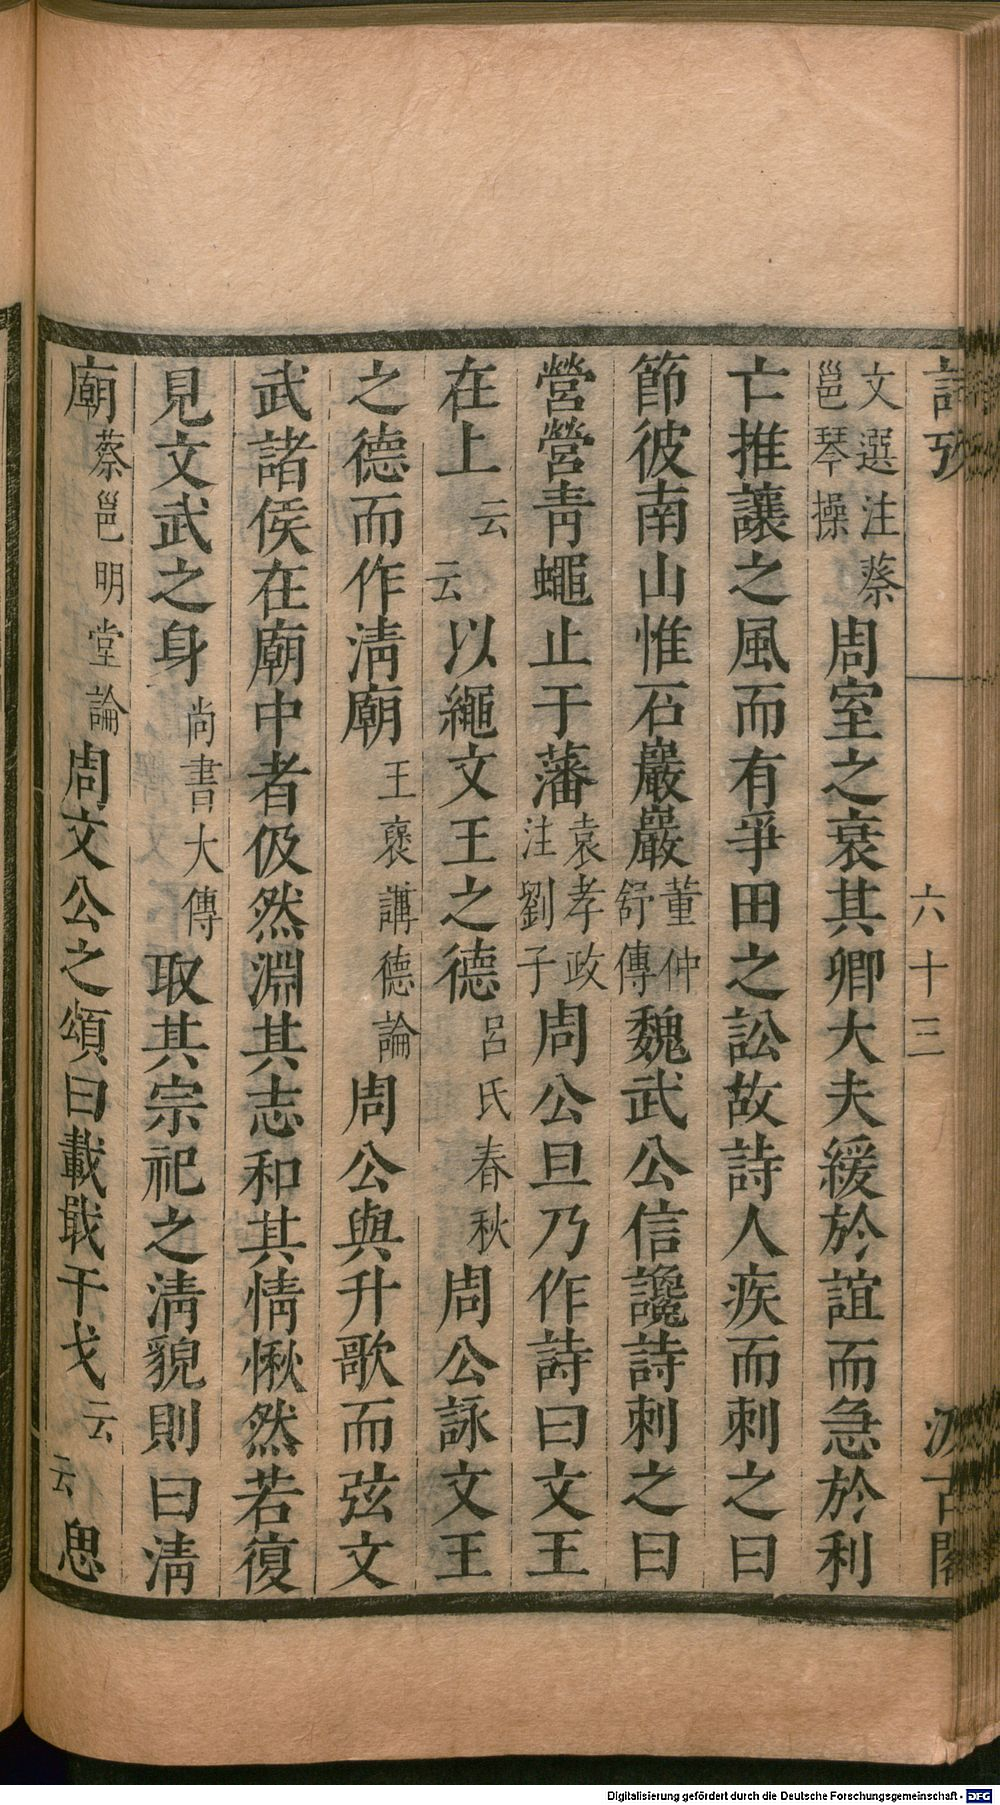 詩攷 六十三 汲古閣
文選注蔡邕琴操周室之衰其卿大夫緩於誼而急於利
亡推讓之風而有爭田之訟故詩人疾而刺之曰
節彼南山惟石巖巖董仲舒傳魏武公信讒詩刺之曰
營營青蠅止于藩袁孝政注劉子周公旦乃作詩曰文王
在上云云以繩文王之德呂氏春秋周公詠文王
之德而作淸廟王襃講德論周公與升歌而弦文
武諸侯在廟中者伋然淵其志和其情愀然若復
見文武之身尚書大傳取其宗祀之淸貌則曰淸
廟蔡邕明堂論周文公之頌曰載戢干戈云云思
Digitalisierung gefördert durch die Deutsche Forschungsgemeinschaft - DFG